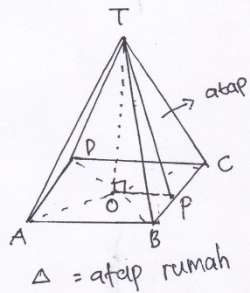 T
atap
D
C
O
P
A
B
Δ = atap rumah